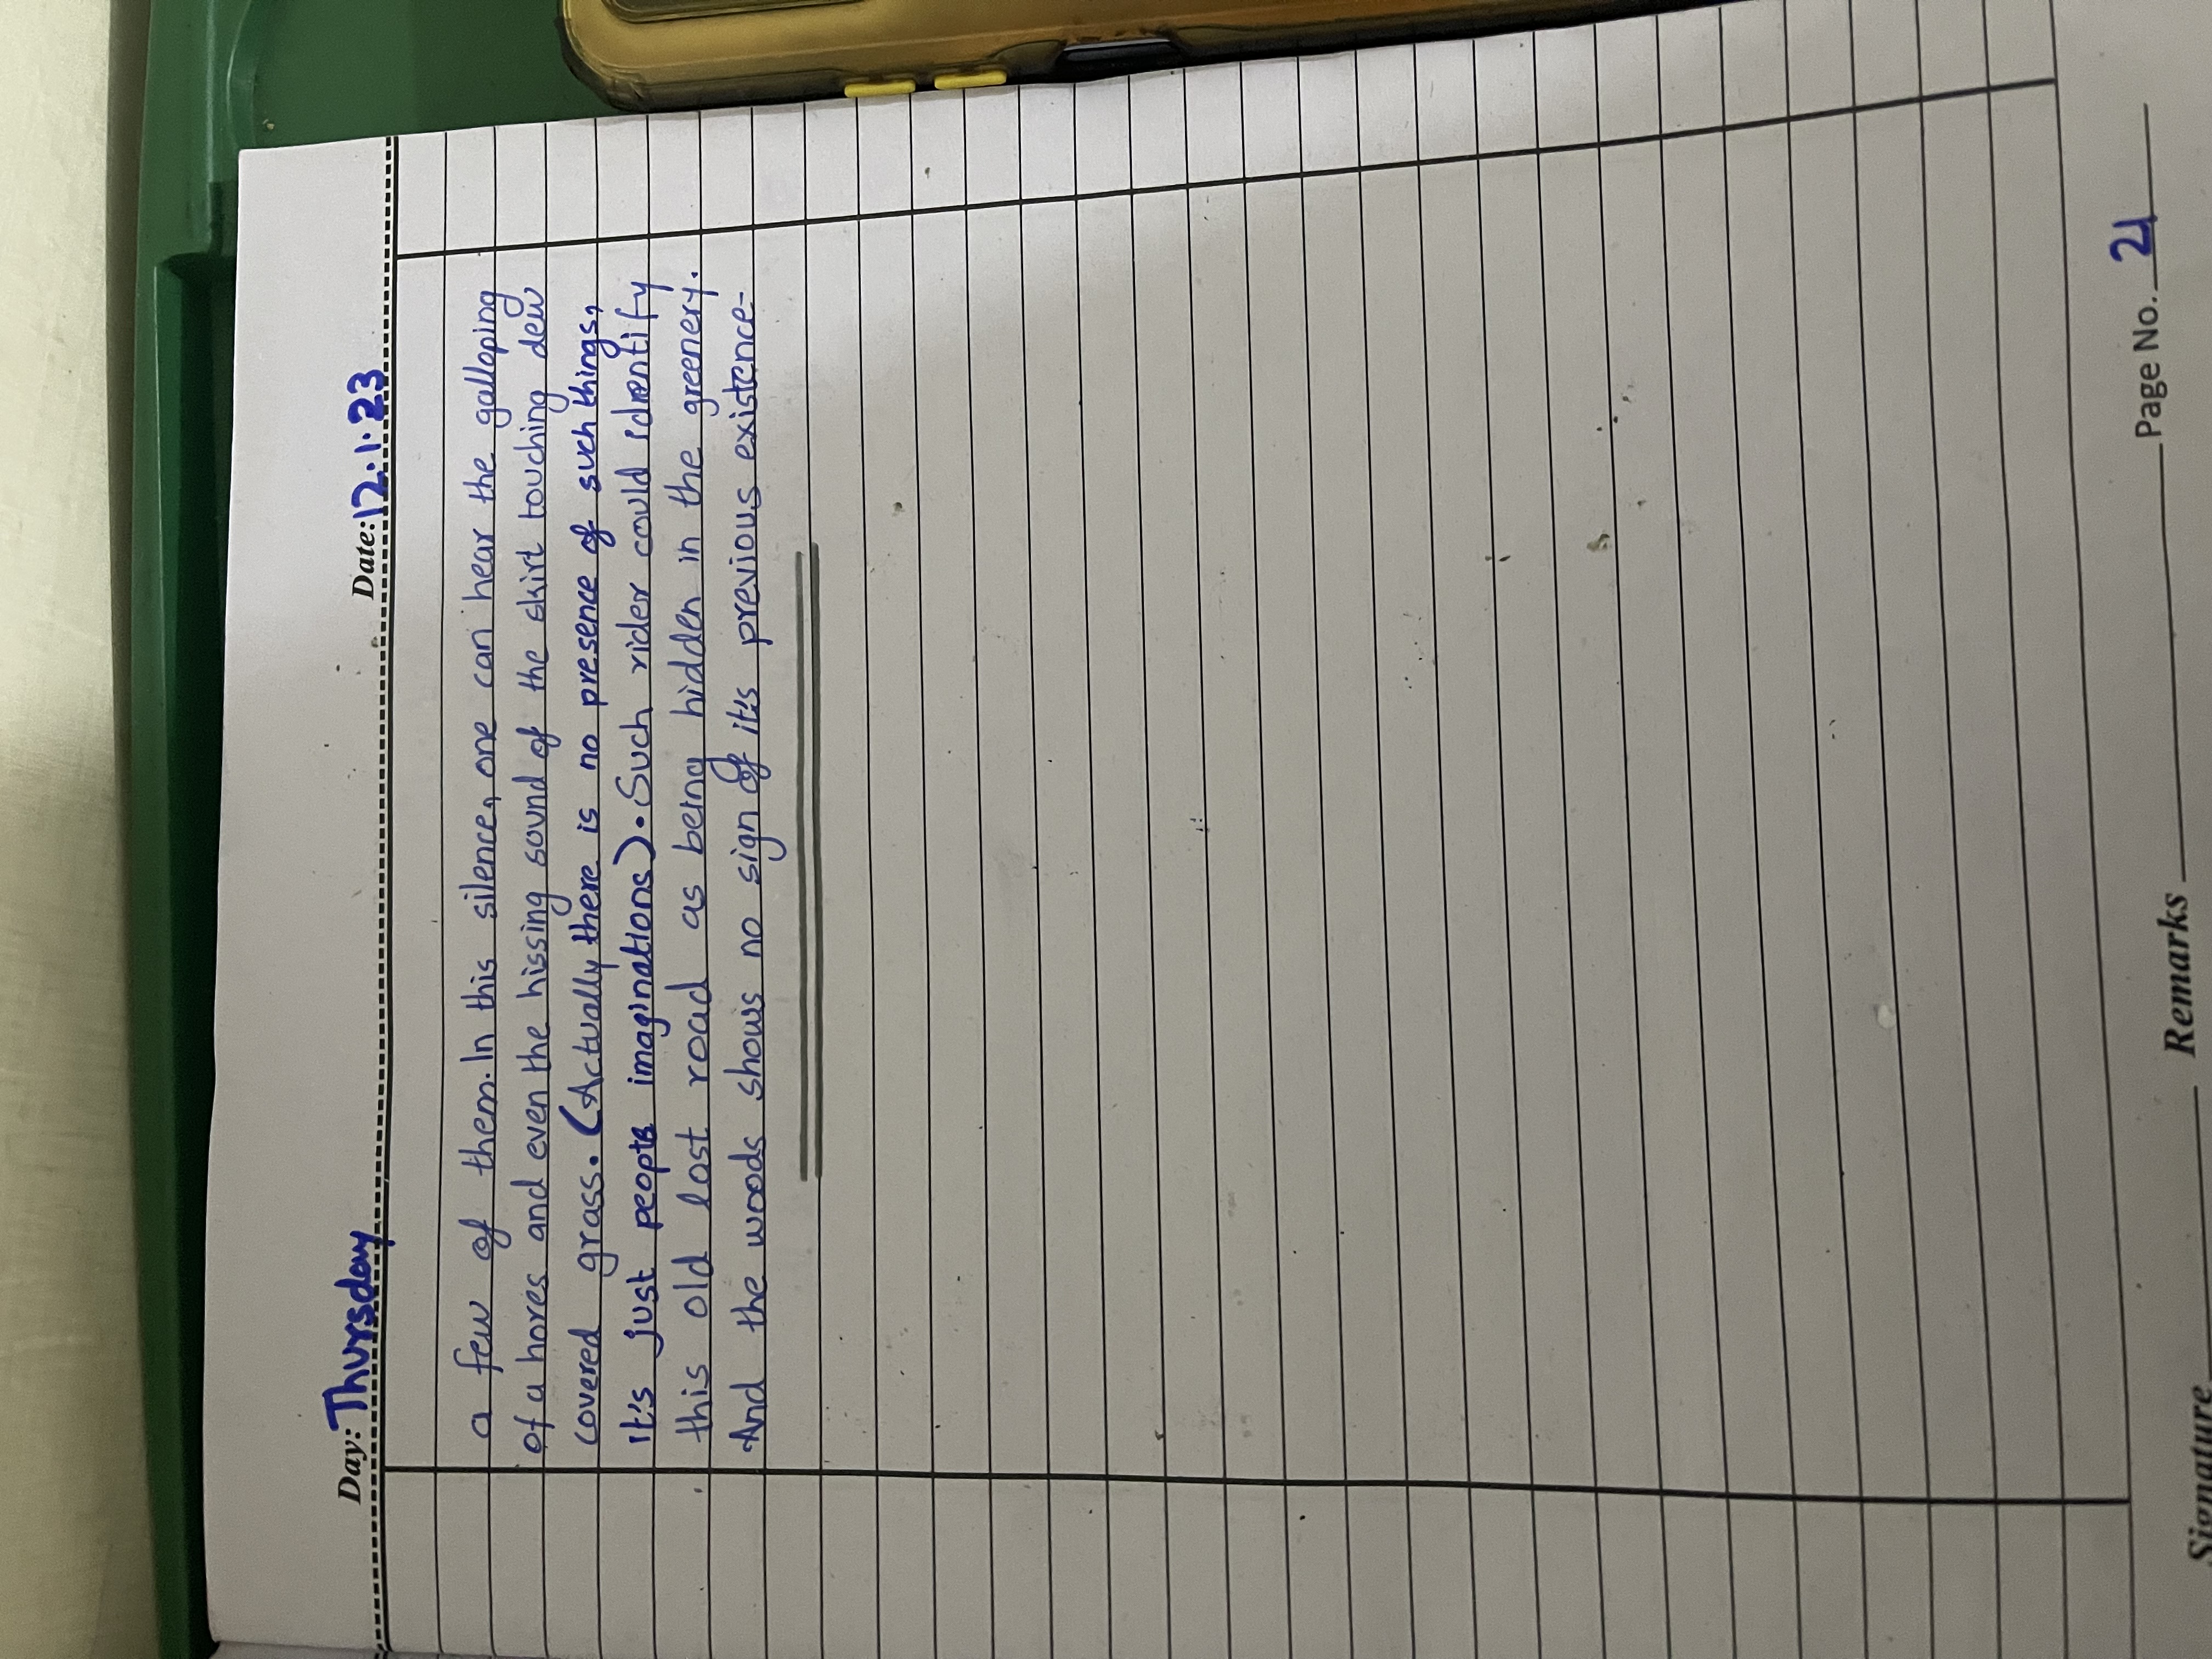 Day: Thursday Date: 12.1.23
a few of them. In this silence, one can hear the galloping
of a hores and even the hissing sound of the skirt touching dew
covered grass. (Actually there is no presence of such things,
it's just peopts imaginations). Such rider could identify
this old lost road as being hidden in the greenery.
And the woods shows no sign of it's previous existence-
Page No. 21
Signature Remarks